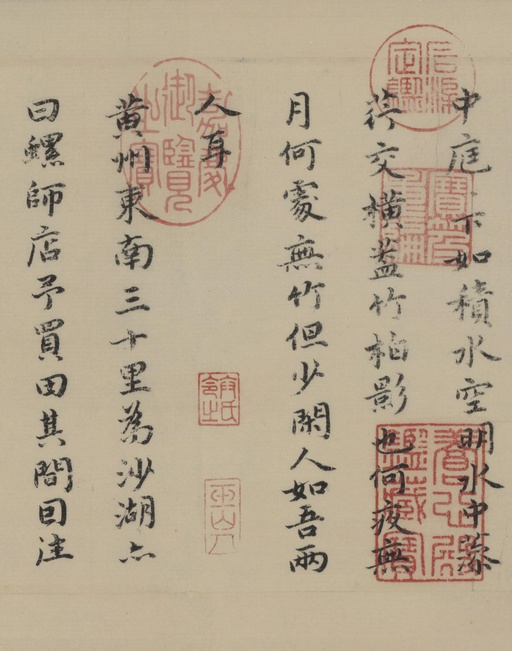 中庭下如積水空明水中藻
荇交橫蓋竹柏影也何夜無
月何處無竹但少閑人如吾兩
人耳
黃州東南三十里為沙湖亦
曰螺師店予買田其間因往
石渠定鑑
寶笈重編
養心殿鑑藏寶
嘉慶御覽之寶